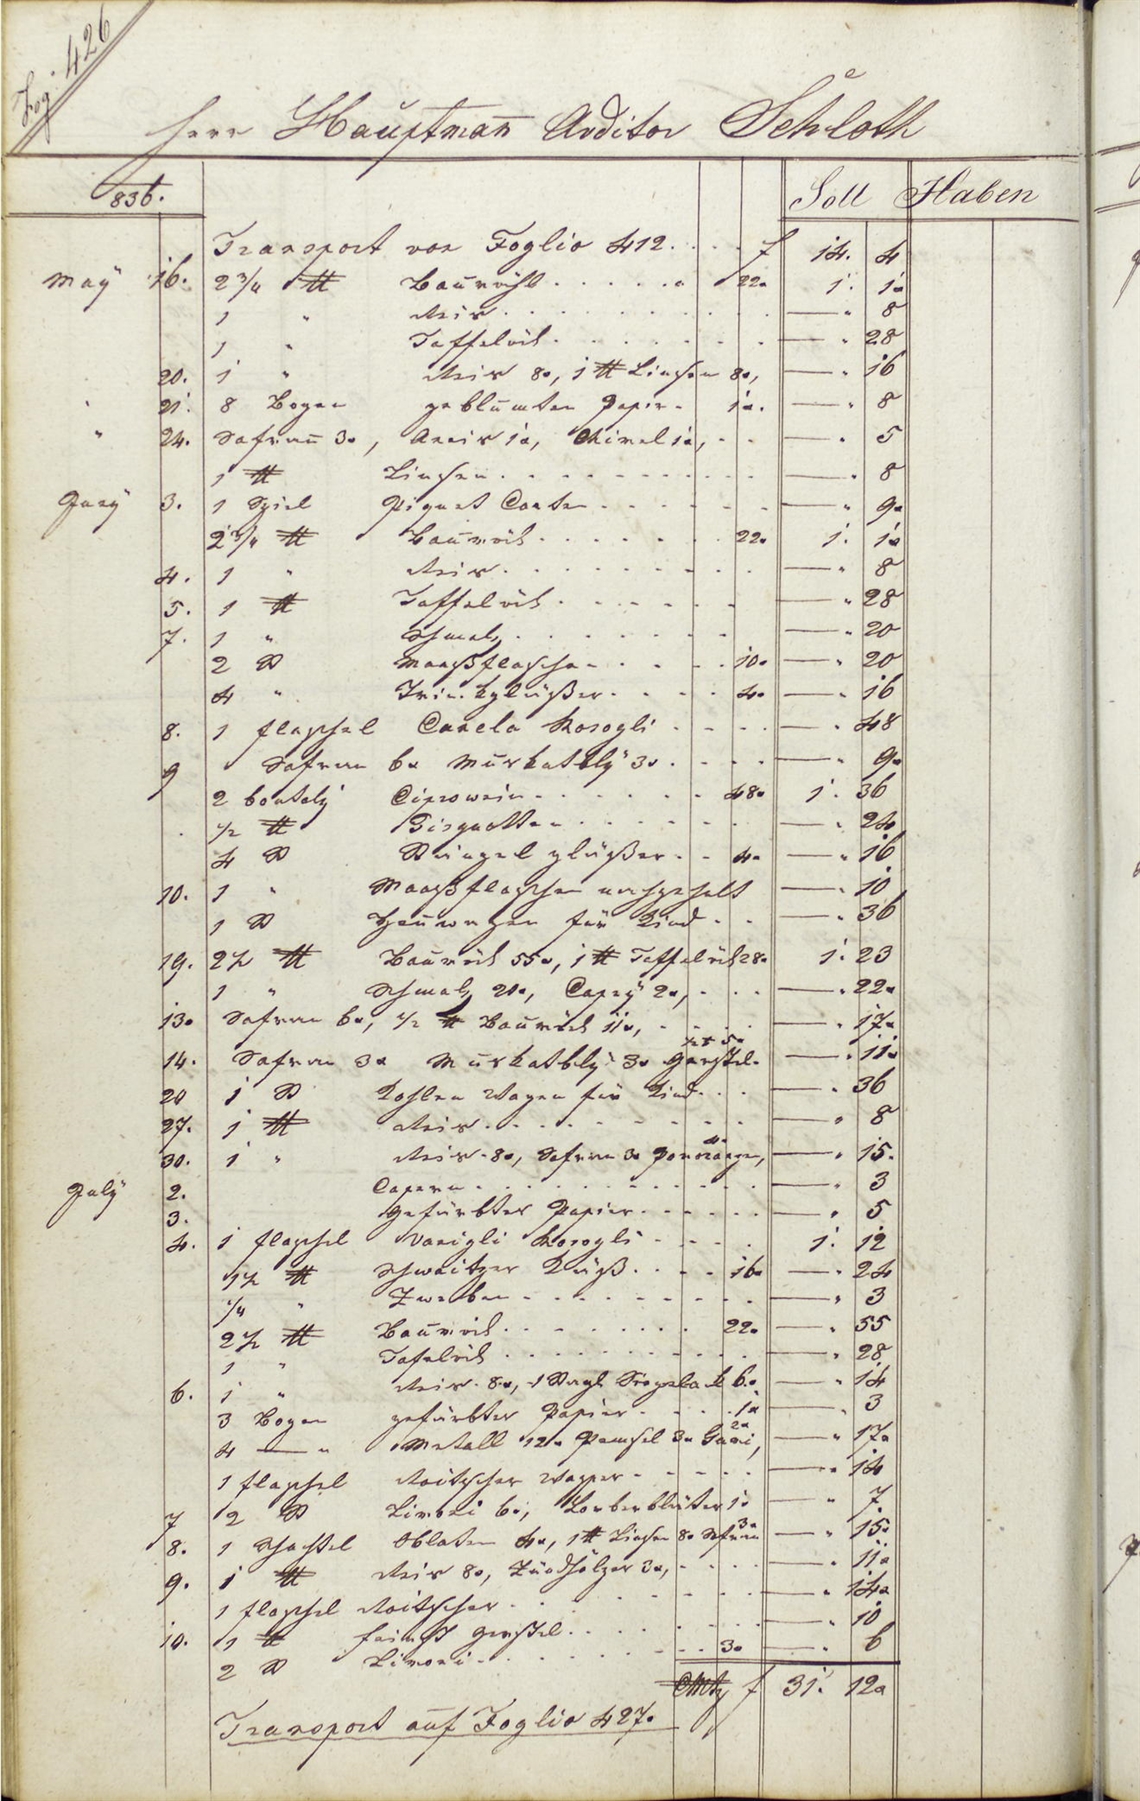 Fog. 426
Herr Hauptman Auditor Schloth
836.
Soll Haben
Transport von Foglio 412 . . . . f 14. 4
May 16. 2 3/4 ℔ Baumöhl . . . . . 22. 1. 1.
1 " Reis . . . . . — " 8
1 " Taffelöhl . . . . . — " 28
20. 1 " Reis 8., 1 ℔ Linsen 8., — " 16
" 21. 8 Bogen geblumten Papir . 1. — " 8
" 24. Safran 3., Aneis 1., Kimel 1., — " 5
1 ℔ Linsen . . . . . — " 8
Juny 3. 1 Spiel Piquet Carten . . . . . — " 9.
2 3/4 ℔ Baumöhl . . . . . 22. 1. 1.
4. 1 " Reis . . . . . — " 8
5. 1 ℔ Taffelöhl . . . . . — " 28
7. 1 " Schmalz . . . . . — " 20
2 St Maaßflaschen . . . . 10. — " 20
4 " Trinkgläßer . . . . 4. — " 16
8. 1 flaschel Canela Rosogli . . . . — " 48
9 Safran 6. Muskatbly 3. . . . . — " 9.
2 boutely Ciprowein . . . . . 48. 1. 36
1/2 ℔ Bisquotten . . . . . — " 24
4 St Stingel gläßer . . 4. — " 16
10. 1 " Maaßflaschen — " 10
1 St für Kind . . — " 36
19. 2 1/2 ℔ Baumöhl 55., 1 ℔ Taffelöhl 28. 1. 23
1 " Schmalz 20., Capry 2., . . . — " 22.
13. Safran 6., 1/2 ℔ Baumöhl 11., — " 17.
14. Safran 3. Muskatbly 3. Gerstel 5. — " 11.
20 1 St Kohlen Wagen für Kind . . . — " 36
27. 1 ℔ Reis . . . . . — " 8
30. 1 " Reis 8., Safran 3. Pomeranzen, 4. — " 15.
July 2. Capern . . . . . — " 3
3. gefärbter Papier . . . . . — " 5
4. 1 flaschel Vanigli Rosogli . . . . 1. 12
1 1/2 ℔ Schweitzer Käß . . . . 16. — " 24
1/4 " Zweben . . . . . — " 3
2 1/2 ℔ Baumöhl . . . . . 22. — " 55
1 " Tafelöhl . . . . . — " 28
6. 1 " Reis 8., 1 Stngl Sieglak 6. — " 14
3 Bogen gefärbter Papier . . . . 1. — " 3
4 — " Metall 12. Pemsel 3. Gumi, 2. — " 17.
1 flaschel Roitscher Wasser . . . . . — " 14
7 2 St Limoni 6., Lorberblätter 1. — " 7
8. 1 Schachtel Oblaten 4., 1 ℔ Linsen 8. Safran 3. — " 15.
9. 1 ℔ Reis 8., Zündhölzer 3., . . . . — " 11.
1 flaschel Roitscher . . . . . — " 14.
10. 1 ℔ feinst Gerstel . . . . . — " 10
2 St Limoni . . . . . 3. — " 6
f 31. 12.
Transport auf Foglio 427.